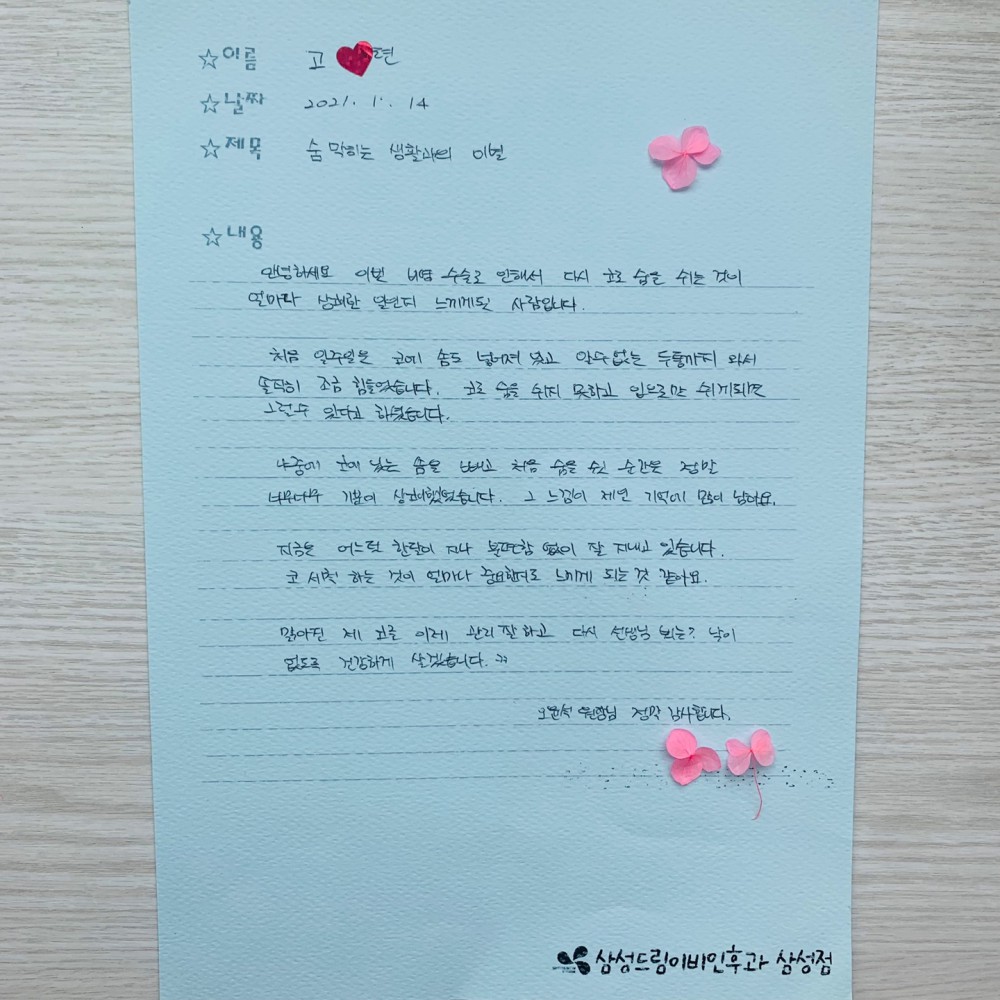 ☆이름 고 현
☆날짜 2021. 1. 14
☆제목 숨 막히는 생활과의 이별
☆내용
안녕하세요 이번 비염 수술로 인해서 다시 코로 숨을 쉬는 것이
얼마나 상쾌한 일인지 느끼게된 사람입니다.
처음 일주일은 코에 솜도 넣어져 있고 알수없는 두통까지 와서
솔직히 조금 힘들었습니다. 코로 숨을 쉬지 못하고 입으로만 쉬게되면
그럴수 있다고 하셨습니다.
나중에 코에 있는 솜을 빼고 처음 숨을 쉰 순간은 정말
너무너무 기분이 상쾌했었습니다. 그 느낌이 제일 기억에 많이 남아요.
지금은 어느덧 한달이 지나 불편함 없이 잘 지내고 있습니다.
코 세척 하는 것이 얼마나 중요한지도 느끼게 되는 것 같아요.
맑아진 제 코를 이제 관리 잘 하고 다시 선생님 뵈는? 날이
없도록 건강하게 살겠습니다. ㅋㅋ
오윤석 원장님 정말 감사합니다.
삼성드림이비인후과 삼성점